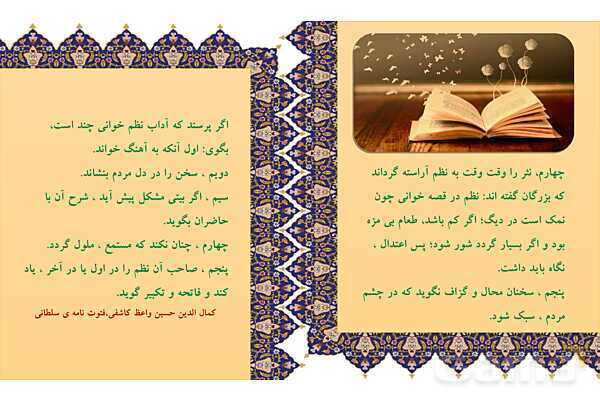 چهارم، نثر را وقت وقت به نظم آراسته گرداند
که بزرگان گفته اند: نظم در قصه خوانی چون
نمک است در دیگ؛ اگر کم باشد، طعام بی مزه
بود و اگر بسیار گردد شور شود؛ پس اعتدال ،
نگاه باید داشت.
پنجم ، سخنان محال و گزاف نگوید که در چشم
مردم ، سبک شود.
اگر پرسند که آداب نظم خوانی چند است،
بگوی: اول آنکه به آهنگ خواند.
دویم ، سخن را در دل مردم بنشاند.
سیم ، اگر بیتی مشکل پیش آید ، شرح آن با
حاضران بگوید.
چهارم ، چنان نکند که مستمع ، ملول گردد.
پنجم ، صاحب آن نظم را در اول یا در آخر ، یاد
کند و فاتحه و تکبیر گوید.
کمال الدین حسین واعظ کاشفی،فتوت نامه ی سلطانی